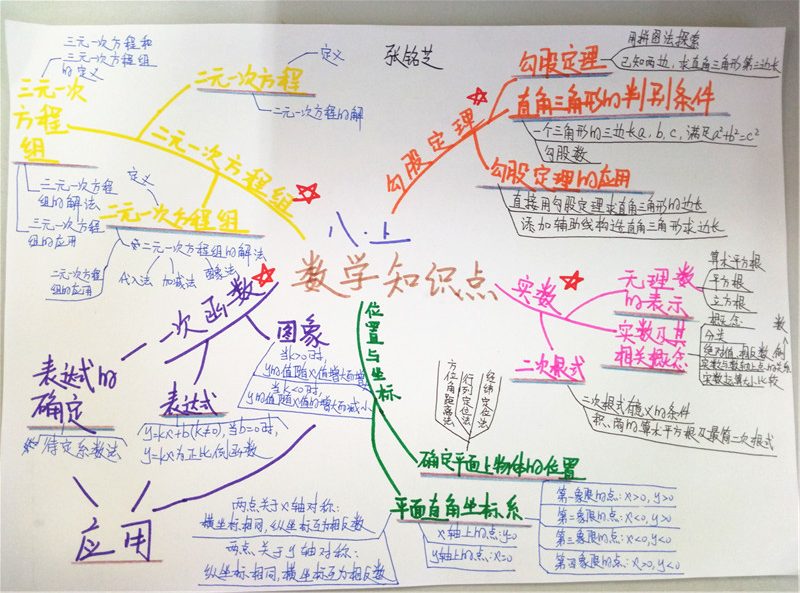 三元一次方程和
三元一次方程组
的定义
三元一次
方程
组
二元一次方程
定义
二元一次方程的解
张铭芝
二元一次方程组
三元一次方程
组的解法
三元一次方程
组的应用
定义
二元一次方程组
二元一次方程组的解法
代入法
加减法
图象法
二元一次方程
组的应用
勾股定理
勾股定理
用拼图法探索
已知两边,求直角三角形第三边长
直角三角形的判别条件
一个三角形的三边长a,b,c,满足a²+b²=c²
勾股数
勾股定理的应用
直接用勾股定理求直角三角形的边长
添加辅助线构造直角三角形求边长
八·上
数学知识点
实数
无理数
的表示
算术平方根
平方根
立方根
实数及其
相关概念
概念
分类
绝对值,相反数,倒数
实数与数轴上点的关系
实数与算大小比较
二次根式
二次根式有意义的条件
积、商的算术平方根及最简二次根式
一次函数
表达式的
确定
待定系数法
表达式
y=kx+b(k≠0),当b=0时,
y=kx为正比例函数
图象
当k>0时,
y的值随x值增大而增大
当k<0时,
y的值随x值的增大而减小
应用
位置与坐标
方位角距离法
行列定位法
经纬定位法
确定平面上物体的位置
平面直角坐标系
两点关于x轴对称:
横坐标相同,纵坐标互为相反数
两点关于y轴对称:
纵坐标相同,横坐标互为相反数
x轴上的点:y=0
y轴上的点:x=0
第一象限的点:x>0,y>0
第二象限的点:x<0,y>0
第三象限的点:x<0,y<0
第四象限的点:x>0,y<0